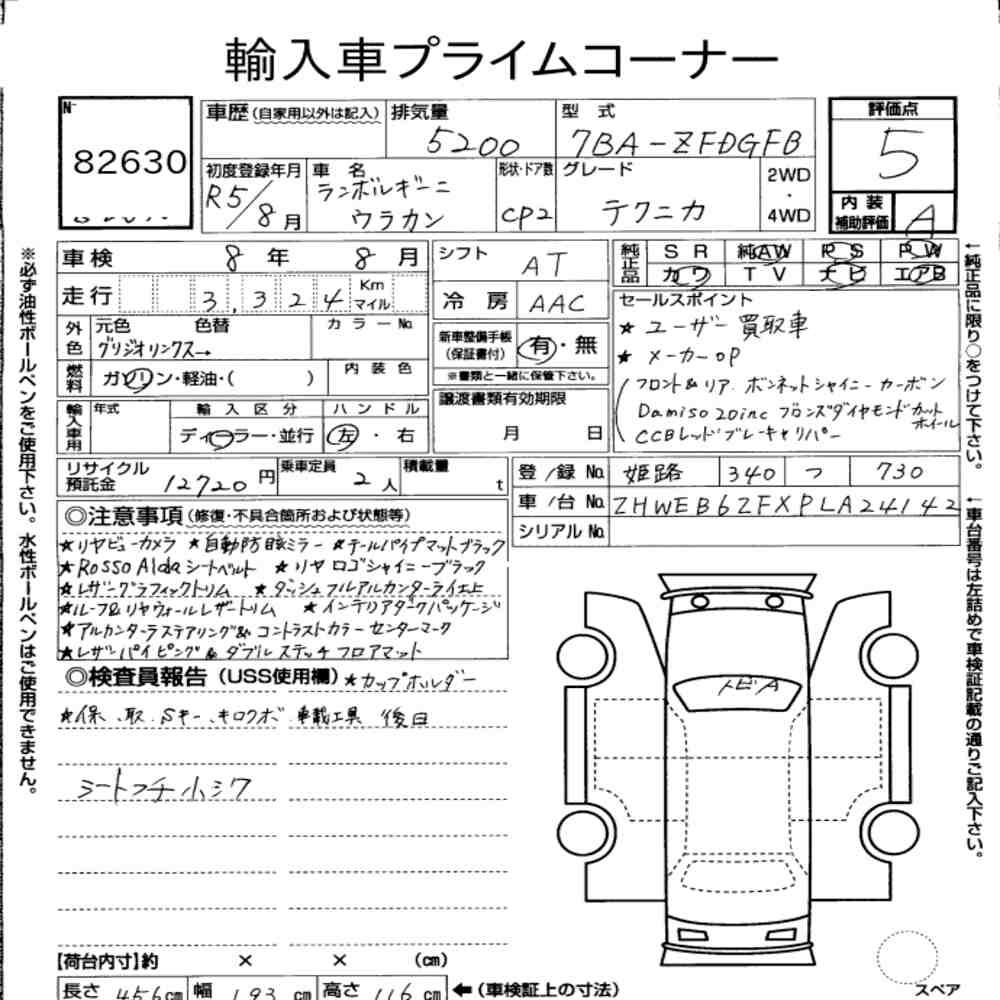 輸入車プライムコーナー
N-
82630
車歴(自家用以外は記入)
排気量
5200
型式
7BA-ZFDGFB
評価点
5
初度登録年月
R5/8月
車名
ランボルギーニ
ウラカン
形状・ドア数
CP2
グレード
テクニカ
2WD
・
4WD
内装
補助評価
A
車検 8年 8月
シフト
AT
純正品
SR 純AW PS PW
カワ TV ナビ エアB
走行 3,324 Km マイル
冷房 AAC
セールスポイント
★ユーザー買取車
★メーカーOP
フロント&リア.ボンネットシャイニーカーボン
Damiso 20inc ブロンズダイヤモンドカットホイール
CCBレッドブレーキャリパー
外色
元色 色替
グリジオリンクス→
カラーNo.
新車整備手帳
(保証書付)
有・無
※書類と一緒に保管下さい。
燃料
ガソリン・軽油・( )
内装色
譲渡書類有効期限
月 日
輸入車用
年式
輸入区分
ディーラー・並行
ハンドル
左・右
リサイクル預託金 12720円
乗車定員 2人
積載量 t
登録No. 姫路 340 つ 730
車台No. ZHWEB6ZFXPLA24142
シリアルNo.
◎注意事項(修復・不具合箇所および状態等)
★リヤビューカメラ ★自動防眩ミラー ★テールパイプマットブラック
★Rosso Aldaシートベルト ★リヤロゴシャイニーブラック
★レザーグラフィックトリム ★ダッシュフルアルカンターライエ上
★ルーフ&リヤウォールレザートリム ★インテリアダークパッケージ
★アルカンターラステアリング& コントラストカラーセンターマーク
★レザーパイピング&ダブルステッチフロアマット
◎検査員報告(USS使用欄)★カップホルダー
★保、取.Sキー.キロクボ.車載工具 後日
シートフチ小シワ
トビA
【荷台内寸】約 × × (cm)
長さ 456cm 幅 193cm 高さ 116cm
←(車検証上の寸法)
スペア
※必ず油性ボールペンをご使用下さい。水性ボールペンはご使用できません。
←純正品に限り○をつけて下さい。
←車台番号は左詰めで車検証記載の通りご記入下さい。